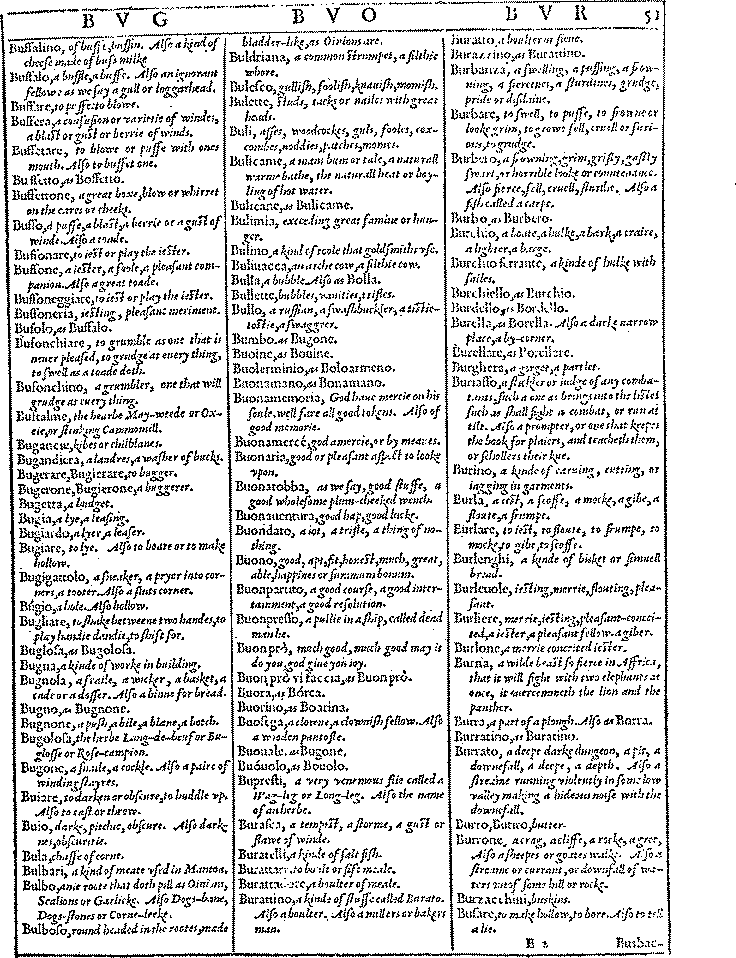 B V G
Buffalino, of buffe, buffin. Also a kind of
cheese made of bufs milke
Buffalo, a buffle, a buffe. Also an ignorant
fellow: as we say a gull or loggarhead.
Buffare, to puffe to blowe.
Buffera, a confusion or varietie of windes,
a blast or gust or berrie of winds.
Buffettare, to blowe or puffe with ones
mouth. Also to buffet one.
Buffetto, as Boffetto.
Buffettone, a great boxe, blow or whirret
on the eares or cheeks.
Buffo, a puffe, a blast, a berrie or a gust of
winde. Also a toade.
Buffonare, to iest or play the iester.
Buffone, a iester, a foole, a pleasant com-
panion. Also a great toade.
Buffoneggiare, to iest or play the iester.
Buffoneria, iesting, pleasant meriment.
Bufolo, as Buffalo.
Bufonchiare, to grumble as one that is
neuer pleased, to grudge at euery thing,
to swell as a toade doth.
Bufonchino, a grumbler, one that will
grudge at euery thing.
Buftalme, the hearbe May-weede or Ox-
eie, or stinking Cammomill.
Bugancie, kibes or chilblanes.
Bugandiera, a landres, a washer of bucks.
Bugerare, Bugierare, to bugger.
Bugerone, Bugierone, a buggerer.
Bugetta, a budget.
Bugia, a lye, a leasing.
Bugiardo, a lyer, a leaser.
Bugiare, to lye. Also to boare or to make
hollow.
Bugigattolo, a sneaker, a pryer into cor-
ners, a tooter. Also a sluts corner.
Bugio, a hole. Also hollow.
Bugliare, to shake betweene two handes, to
play handie dandie, to shift for.
Buglosa, as Bugolosa.
Bugna, a kinde of worke in building.
Bugnola, a scaile, a wicker, a basket, a
cade or a dosser. Also a binne for bread.
Bugno, as Bugnone.
Bugnone, a push, a bile, a blane, a botch.
Bugolosa, the hearbe Lang-de-beuf or Bu-
glosse or Rose-campion.
Bugone, a snaile, a cockle. Also a paire of
winding stayres.
Buiare, to darken or obscure, to huddle vp.
Also to cast or throw.
Buio, darke, pitchie, obscure. Also dark-
nes, obscuritie.
Bula, chaffe of corne.
Bulbari, a kind of meate vsed in Mantoa.
Bulbo, anie roote that doth pill as Oinions,
Scalions or Garlicke. Also Dogs-bane,
Dogs-stones or Corne-leeke.
Bulboso, round headed in the rootes, made
B V O
bladder-like, as Oinions are.
Buldriana, a common strumpet, a filthie
whore.
Bulesco, gullish, foolish, knauish, momish.
Bulette, studs, tacks or nailes with great
heads.
Buli, asses, woodcockes, guls, fooles, cox-
combes, noddies, patches, momes.
Bulicame, a main bum or tale, a naturall
warme bathe, the naturall heat or boy-
ling of hot water.
Bulicane, as Bulicame.
Bulimia, exceeding great famine or hun-
ger.
Bulino, a kind of toole that goldsmiths vse.
Bulimacca, an arche cow, a filthie cow.
Bulla, a bubble. Also as Bolla.
Bullette, bubbles, vanities, trifles.
Bullo, a ruffian, a swashbuckler, a tistie-
tostie, a swaggrer.
Bumbo, as Bugone.
Buoine, as Bouine.
Buolerminio, as Boloarmeno.
Buonamano, as Bonamano.
Buonamemoria, God haue mercie on his
soule. well fare all good tokens. Also of
good memorie.
Buonamercé, god amercie, or by meanes.
Buonaria, good or pleasant aspect to looke
vpon.
Buonarobba, as we say, good stuffe, a
good wholesome plum-cheeked wench.
Buonauentura, good hap, good lucke.
Buondato, a iot, a trifle, a thing of no-
thing.
Buono, good, apt, fit, honest, much, great,
able, happines or summum bonum.
Buonpartito, a good course, a good inter-
tainment, a good resolution.
Buonpresso, a pullie in a ship, called dead
man he.
Buonprò, much good, much good may it
do you, god giue you ioy.
Buon prò vi faccia, as Buon prò.
Buora, as Bórea.
Buorino, as Boarina.
Buosega, a clowne, a clownish fellow. Also
a wooden pantofle.
Buouale, as Bugone,
Buóuolo, as Bouolo.
Bupresti, a very venemous flie called a
Wag-leg or Long-leg. Also the name
of an hearbe.
Burasca, a tempest, a storme, a gust or
flawe of winde.
Buratelli, a kinde of salt fish.
Burattare, to boult or sift meale.
Burattatore, a boulter of meale.
Burattino, a kinde of stuffe called Burato.
Also a boulter. Also a millers or bakers
man.
B V R 51
Buratto, a boulter or sieue.
Burazzino, as Burattino.
Burbanza, a swelling, a puffing, a frow-
ning, a fiercenes, a sturdines, grudge,
pride or disdaine.
Burbare, to swell, to puffe, to frowne or
looke grim, to growe fell, cruell or furi-
ous, to grudge.
Burbero, a frowning, grim, grisly, gastly
swart, or horrible looke or countenance.
Also fierce, fell, cruell, sturdie. Also a
fish called a carpe.
Burbo, as Burbero.
Burchio, a boate, a hulke, a bark, a craire,
a lighter, a barge.
Burchio ferrante, a kinde of hulke with
sailes.
Burchiello, as Burchio.
Burdello, as Bordello.
Burella, as Borella. Also a darke narrow
place, a by-corner.
Burellare, as Porcellare.
Burghera, a gorget, a partlet.
Buriasso, a stickler or iudge of any comba-
tants, such a one as brings into the listes
such as shall fight a combat, or run at
tilt. Also a prompter, or one that keepes
the book for plaiers, and teacheth them,
or schollers their kue.
Burino, a kinde of caruing, cutting, or
iagging in garments.
Burla, a iest, a scoffe, a mocke, a gibe, a
floute, a frumpe.
Burlare, to iest, to floute, to frumpe, to
mocke, to gibe, to scoffe.
Burlenghi, a kinde of bisket or simnell
bread.
Burleuole, iesting, merrie, flouting, plea-
sant.
Burliere, merrie, iesting, pleasant-concei-
ted, a iester, a pleasant fellow. a giber.
Burlone, a merrie conceited iester.
Burna, a wilde beast so fierce in Affrica,
that it will fight with two elephants at
once, it ouercommeth the lion and the
panther.
Burra, a part of a plough. Also as Borra.
Burratino, as Buratino.
Burrato, a deepe darke dungeon, a pit, a
downefall, a deepe, a depth. Also a
streame running violently in some low
valley making a hideous noise with the
downefall.
Burro, Butiro, butter.
Burrone, a crag, a cliffe, a rocke, a gree,
Also a sheepes or goates walke. Also a
streame or currant, or downfall of wa-
ters out of some hill or rocke.
Burzacchini, buskins.
Busare, to make hollow, to bore. Also to tell
a lie.
E 2 Busbac-